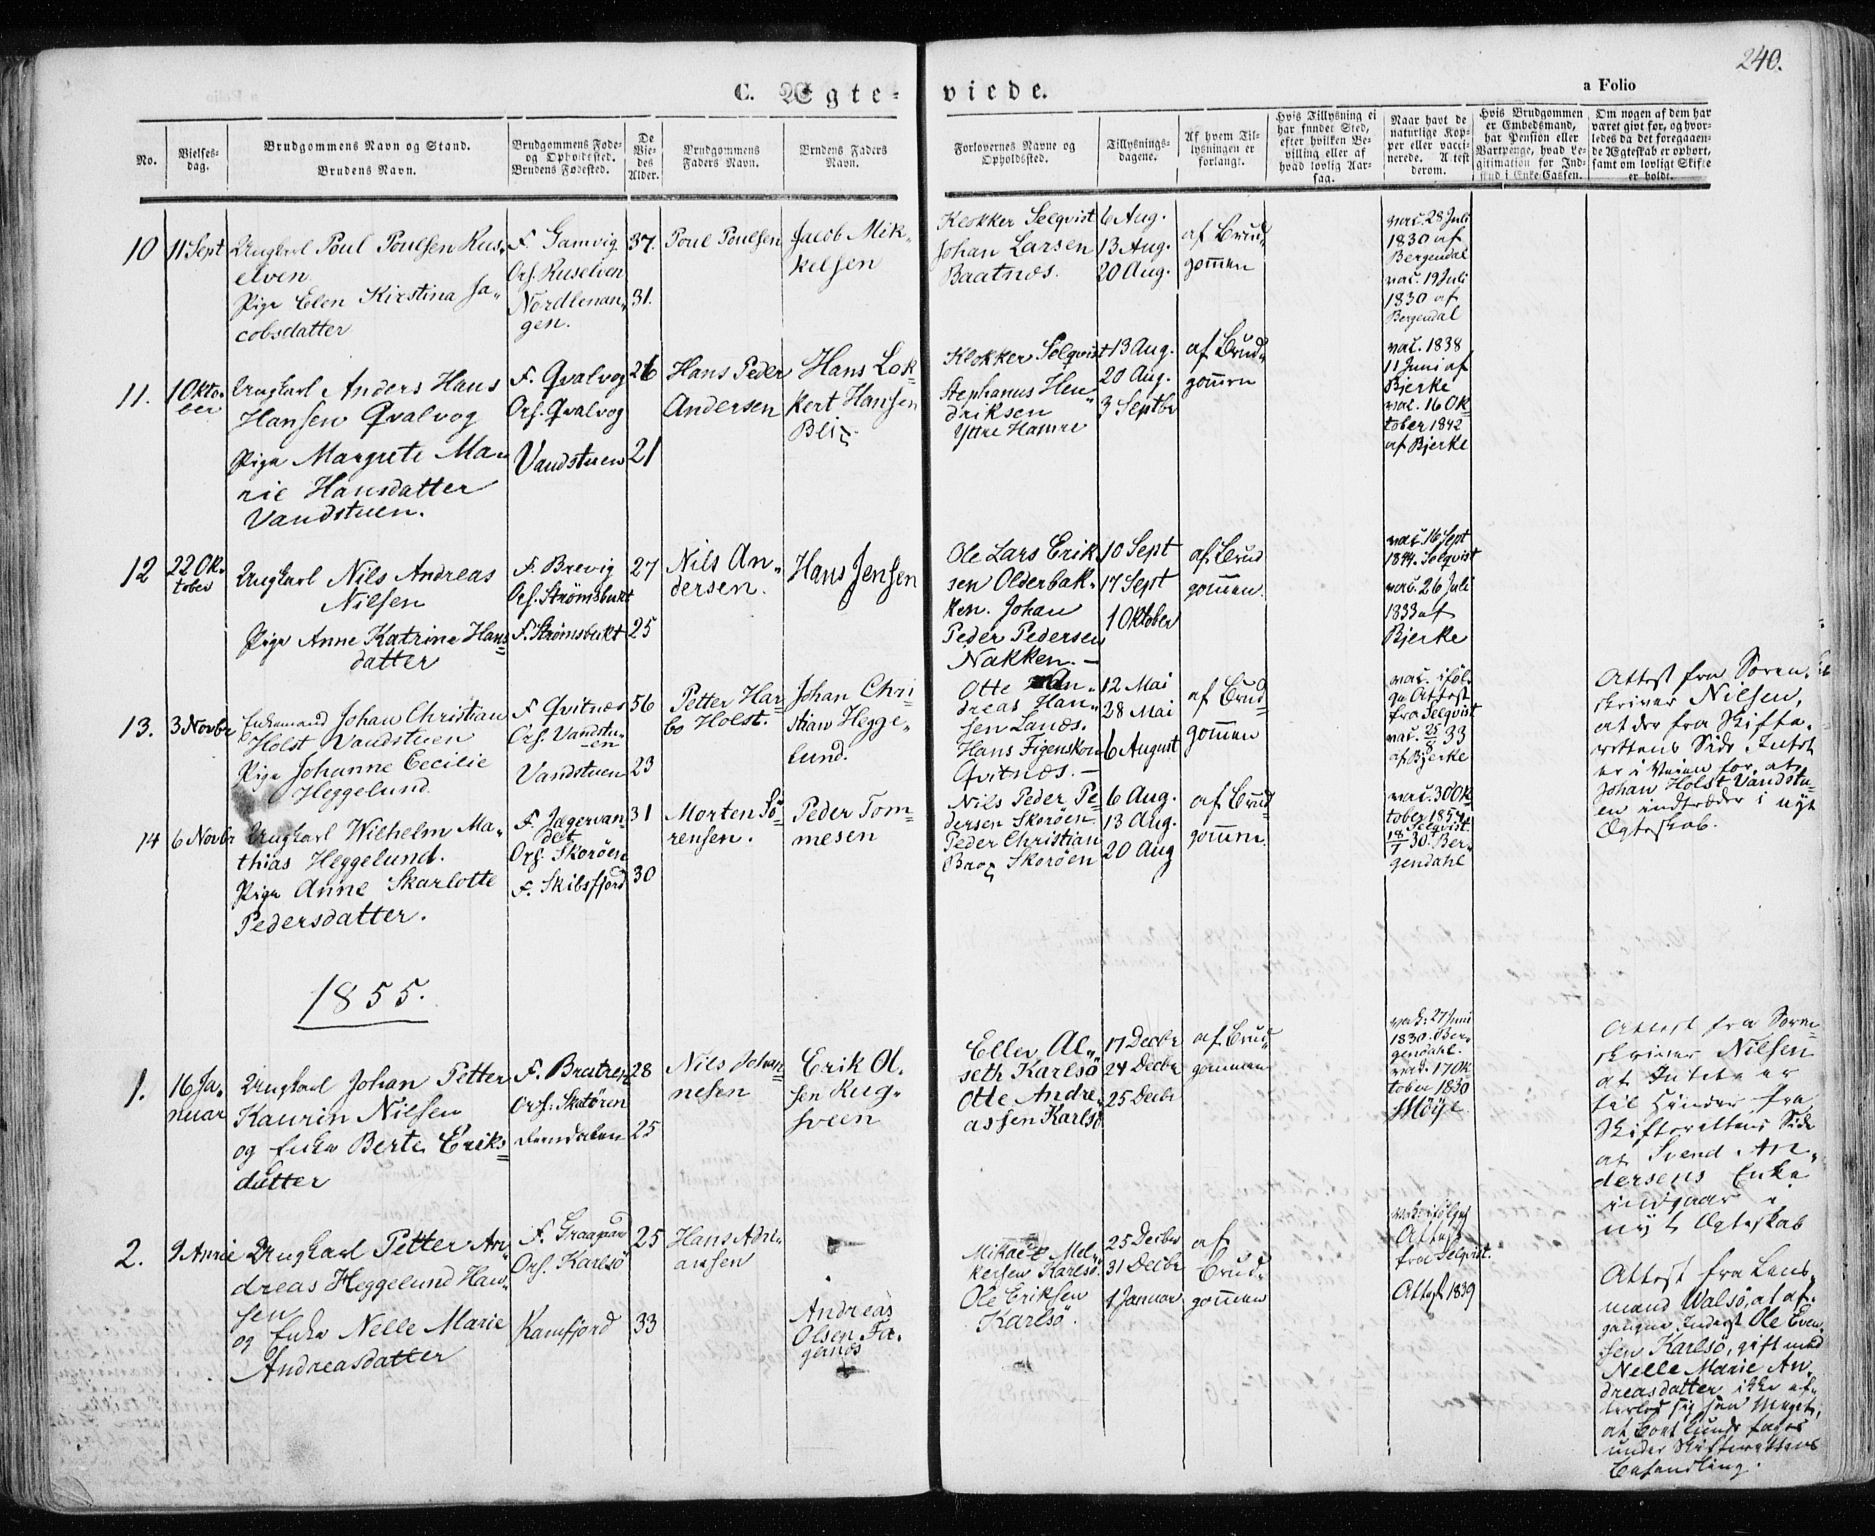 240.
C. Ægte-
viede.
a Folio
No.
Vielses-
dag.
Brudgommens Navn og Stand.
Brudens Navn.
Brudgommens Føde-
og Opholdsted.
Brudens Fødested.
De
Vie-
des
Alder.
Brudgommens
Faders Navn.
Brudens Faders
Navn.
Forlovernes Navne og
Opholdsted.
Tillysnings-
dagene.
Af hvem Til-
lysningen er
forlangt.
Hvis Tillysning ei
har fundet Sted,
efter hvilken Be-
villing eller af
hvad lovlig Aar-
sag.
Naar havt de
naturlige Kop-
per eller vacci-
nerede. Attest
derom.
Hvis Brudgommen
er Embedsmand,
har Pension eller
Vartpenge, hvad Le-
gitimation for Ind-
skud i Enke-Cassen.
Om nogen af dem har
været gift før, og hvor-
ledes da det foregaaen-
de Ægteskab er ophørt,
samt om lovligt Skifte
er holdt.
10
11 Sept
Ungkarl Poul Poulsen Rus-
elven
Pige Elen Kirstina Ja-
cobsdatter
F. Gamvig
Oph. Ruselven
Nordlenan-
gen.
37.
31.
Poul Poulsen
Jacob Mik-
kelsen
Klokker Selqvist
Johan Larsen
Baatnæs.
6 Aug.
13 Aug.
20 Aug.
af Brud-
gommen
vac. 28 Juli
1830 af
Bergendal
vac. 19 Juli
1830 af
Bergendal
11.
1 Okto-
ber
Ungkarl Anders Hans
Hansen Qvalvog
Pige Margrete Ma-
rie Hansdatter
Vandstuen.
F. Qvalvog
Oph. Qvalvog
Vandstuen
26
21
Hans Peder
Andersen
Hans Lok-
kert Hansen
Blix.
Klokker Selqvist
Stephanus Hen-
driksen
Yttre Hamre
13 Aug.
20 Aug.
3 Septbr
af Brud-
gommen
vac. 1838
11 Juni af
Bjerke
vac. 16 Ok-
tober 1842
af Bjerke
12
22 Ok-
tober
Ungkarl Nils Andreas
Nilsen
Pige Anne Katrine Hans-
datter
F. Brevig
Oph. Strømsbukt
F. Strømsbukt
27
25
Nils An-
dersen.
Hans Jensen
Ole Lars Erik
sen Olderbak-
ken. Johan
Peder Pedersen
Nakken. —
10 Sept
17 Sept
1 Oktober
af Brud
gommen.
vac. 16 Sept
1844. Selqvist
vac. 26 Juli
1833 af
Bjerke
13.
3 Novbr
Enkemand Johan Christian
Holst Vandstuen
Pige Johanne Cecilie
Heggelund
F. Qvitnæs
Oph. Vandstu-
en
Vandstuen
56
23
Petter Har-
bo Holst.
Johan Chri-
stian Hegge-
lund.
Otte An-
dreas Han-
sen Lanæs.
Hans Figenskou
Qvitnæs. —
12 Mai
28 Mai
6 August
af Brud-
gommen
vac. iføl-
ge Attest
fra Selqvist
vac. 25/8 33
af Bjerke
Attest fra Soren-
skriver Nilsen,
at der fra Skifte-
rettens Side Intet
er i Veien for, at
Johan Holst Vandstu-
en indtræder i nyt
Ægteskab.
14
6 Novbr
Ungkarl Wilhelm Ma-
thias Heggelund.
Pige Anne Skarlotte
Pedersdatter.
F. Jægervan-
det
Oph. Skorøen
F. Skibsfjord
31
30
Morten Sö-
rensen.
Peder Tom-
mesen
Nils Peder Pe-
dersen Skorøen.
Peder Christian
Skorøen
6 Aug.
13 Aug.
20 Aug
af Brud
gommen.
vac. 30 Ok-
tober 1854
Selqvist.
18/7 30. Ber-
gendahl
1855.
1.
16 Ja-
nuar
Ungkarl Johan Petter
Kaurin Nilsen
og Enke Berte Eriks-
datter
28
25
Nils Johan-
nesen
Erik Ol-
sen Rug-
sveen
Eller Al-
seth Karlsö
Otte Andre-
assen Karlsö
17 Decbr
24 Decbr
25 Decbr
af Brud-
gommen
vac. 27 Juni
1830. Ber-
gendahl.
vac. 17 Ok
tober 1830
Attest fra Soren-
skriver Nilsen
at Intet er
til Hinder fra
Skifterettens Side
at Svend An-
dersens Enke
indgaar i
nyt Ægteskab
2.
Ungkarl Petter An-
dreas Heggelund Han-
sen
og Enke Nelle Marie
Andreasdatter
Oph. Karlsö
25
33
Hans Adri-
ansen
Andreas
Olsen Fa-
gernæs
Mikael Mel-
kersen Karlsö.
Ole Eriksen
Karlsö.
25 Decbr
31 Decbr
1 Januar
af
Brud-
gommen
Attest
fra Selqvist.
Attest 1839
Attest fra Lens
mand Walsö, at af-
gangne Inderst Ole Even-
sen Karlsö, gift med
Nelle Marie An-
dreasdatter, ikke ef-
terlod sig saa Meget,
at Boet kunde tages
under Skifterettens
Behandling.